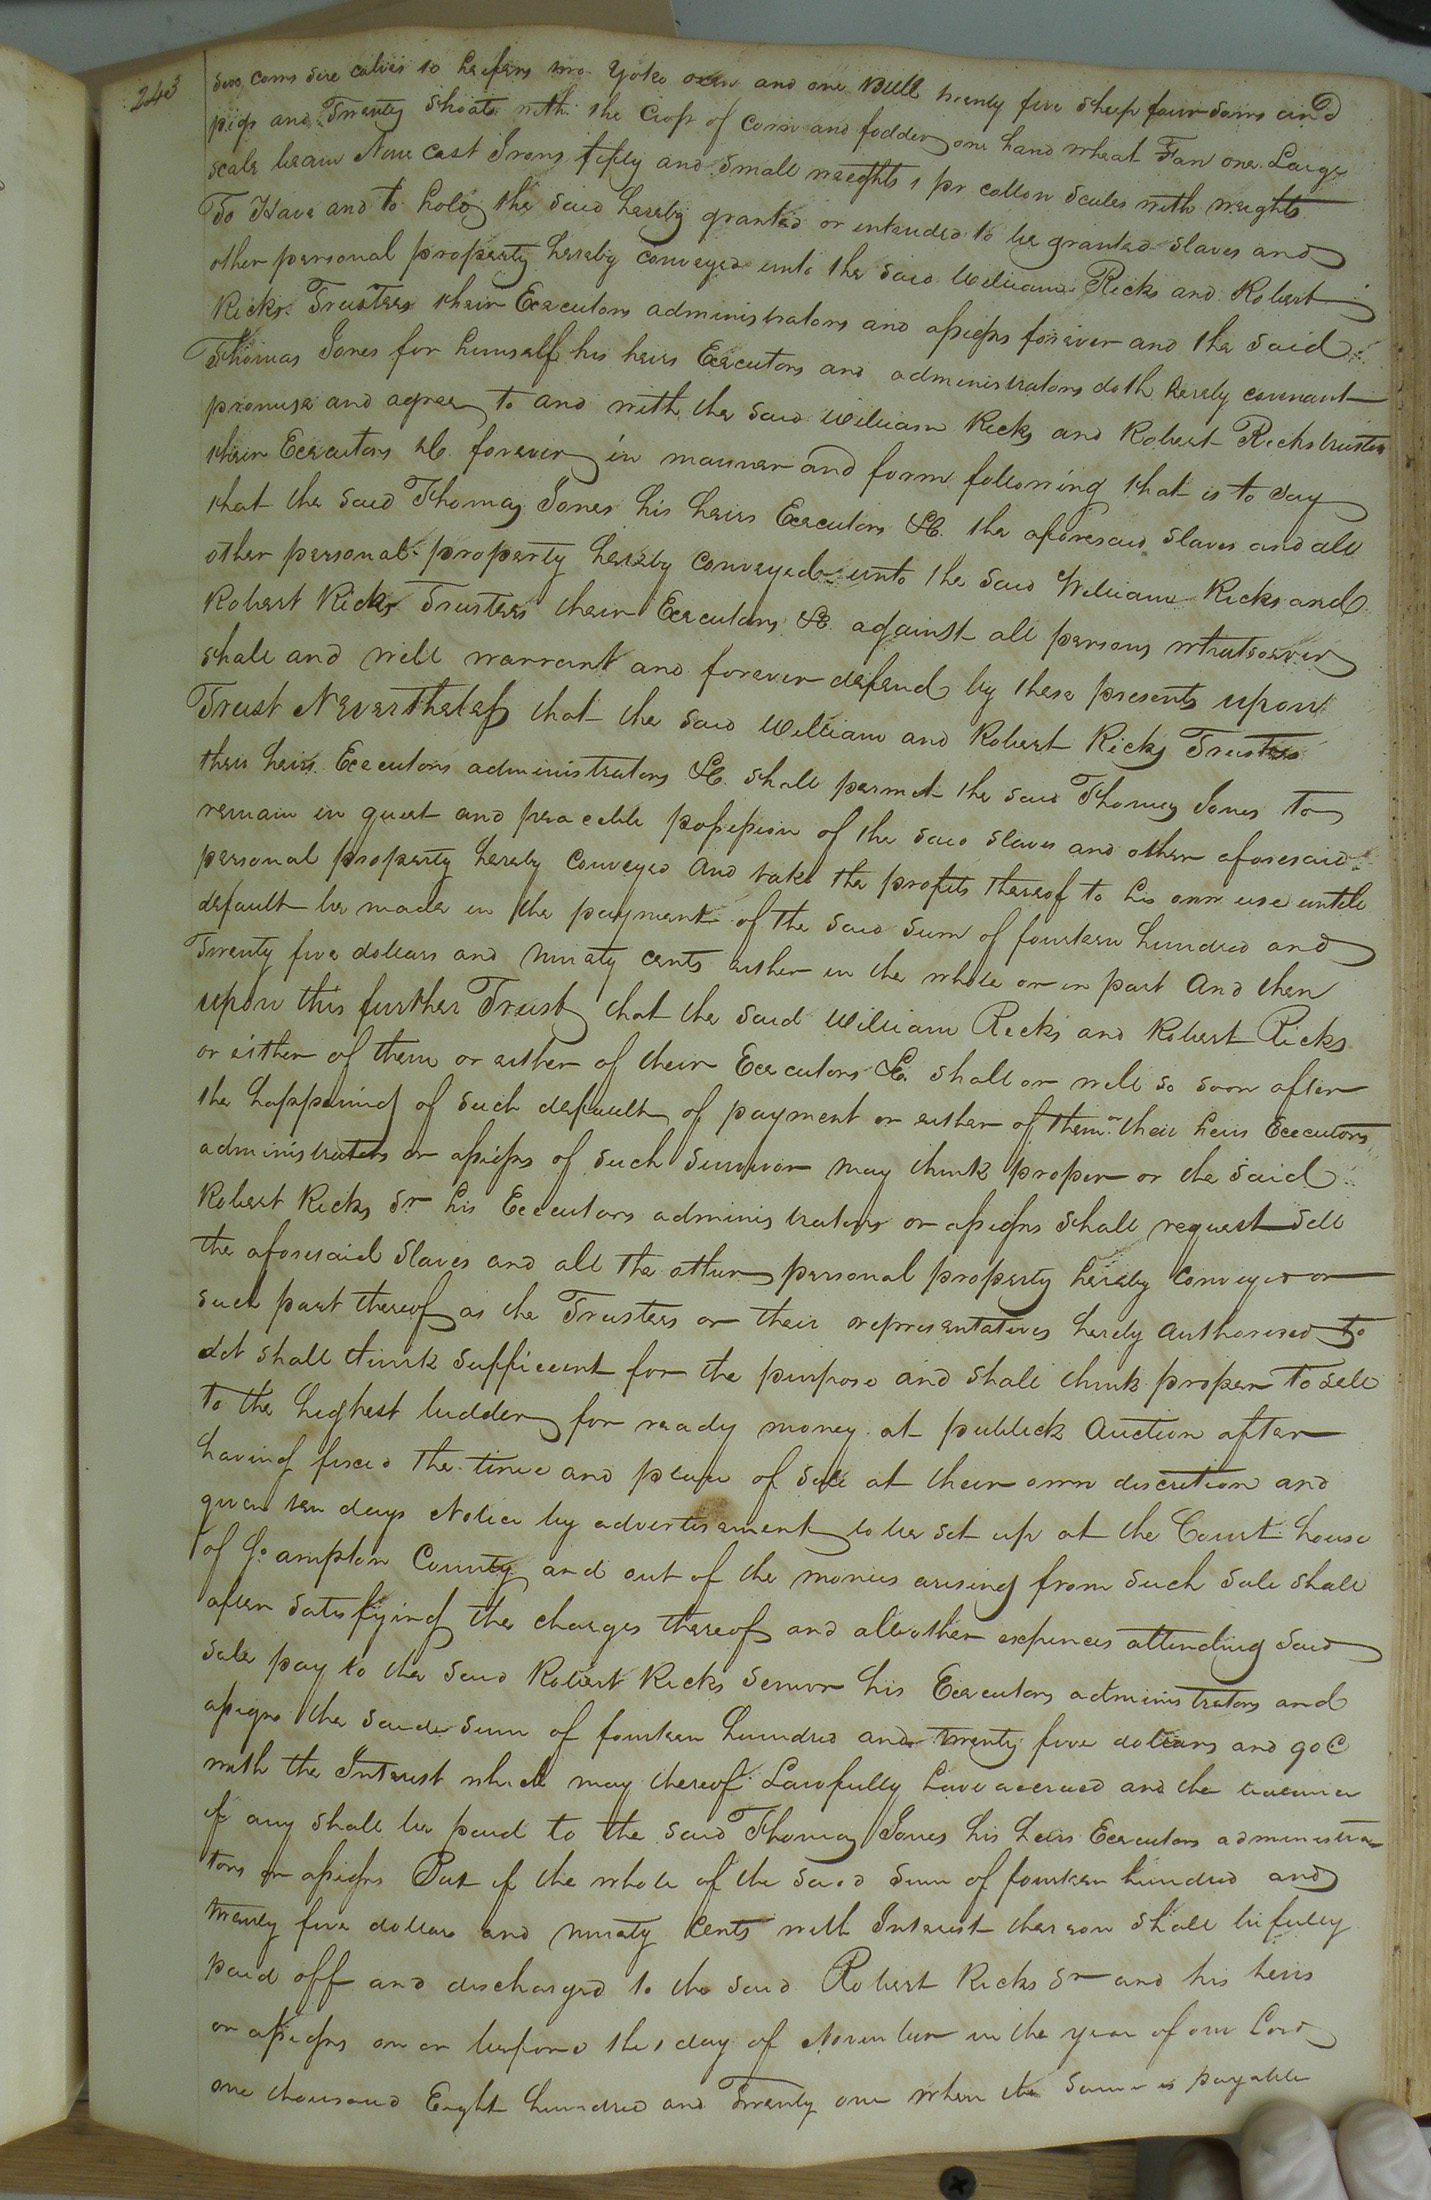 243
two cows five calves 10 heifers two Yoke oxen and one Bull twenty five sheep four sows and
pigs and Twenty Shoats with the Crop of Corn and fodder one hand wheat Fan one Large
scale beam Nine cast Irons fifty and small weights 1 pr cotton Scales with weights
To Have and to hold the said hereby granted or intended to be granted slaves and
other personal property hereby conveyed unto the said William Ricks and Robert
Ricks Trustees their Executors administrators and assigns forever and the said
Thomas Jones for himself his heirs Executors and administrators doth hereby covenant
promise and agree to and with the said William Ricks and Robert Ricks trustees
their Executors &C. forever in manner and form following that is to say
that the said Thomas Jones his heirs Executors &C. the aforesaid slaves and all
other personal property hereby conveyed unto the said William Ricks and
Robert Ricks Trustees their Executors &C against all persons whatsoever
shall and will warrant and forever defend by these presents upon
Trust Neverthelefs that the said William and Robert Ricks Trustees
their heirs Executors administrators &C. shall permit the said Thomas Jones to
remain in quiet and peaceble pofsefsion of the said slaves and other aforesaid
personal property hereby conveyed and take the profits thereof to his own use untill
default be made in the payment of the said sum of fourteen hundred and
Twenty five dollars and ninety cents either in the whole or in part And then
upon this further Trust that the said William Ricks and Robert Ricks
or either of them or either of their Executors &C. shall or will so soon after
the happening of such default of payment or either of them or their heirs Executors
administrators or afsigns of such survivor may think proper or the said
Robert Ricks Sr his Executors administrators or afsigns shall request sell
the aforesaid slaves and all the other personal property hereby conveyed or
such part thereof as the Trustees or their representatives hereby authorised to
Act shall think sufficient for the purpose and shall think proper to sell
to the highest bidder for ready money at publick Auction after
having fixed the time and place of sale at their own discretion and
given ten days Notice by advertisement to be set up at the Court house
of So.ampton County and out of the monies arising from such sale shall
after satisfying the charges thereof and all other expences attending said
sale pay to the said Robert Ricks Senior his Executors administrators and
afsigns the said sum of fourteen hundred and twenty five dollars and 90 C
with the Interest which may thereof Lawfully have accrued and the
if any shall be paid to the said Thomas Jones his heirs Executors administra-
tors or afsigns But if the whole of the said sum of fourteen hundred and
twenty five dollars and ninety Cents with Interest thereon shall be fully
paid off and discharged to the said Robert Ricks Sr and his heirs
or afsigns on or before the 1 day of November in the year of our Lord
one thousand Eight hundred and Twenty one when the same is payable